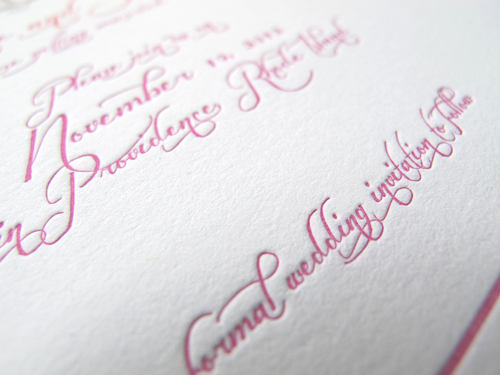 and
Please join us on
November 10, 2012
in Providence, Rhode Island
formal wedding invitation to follow